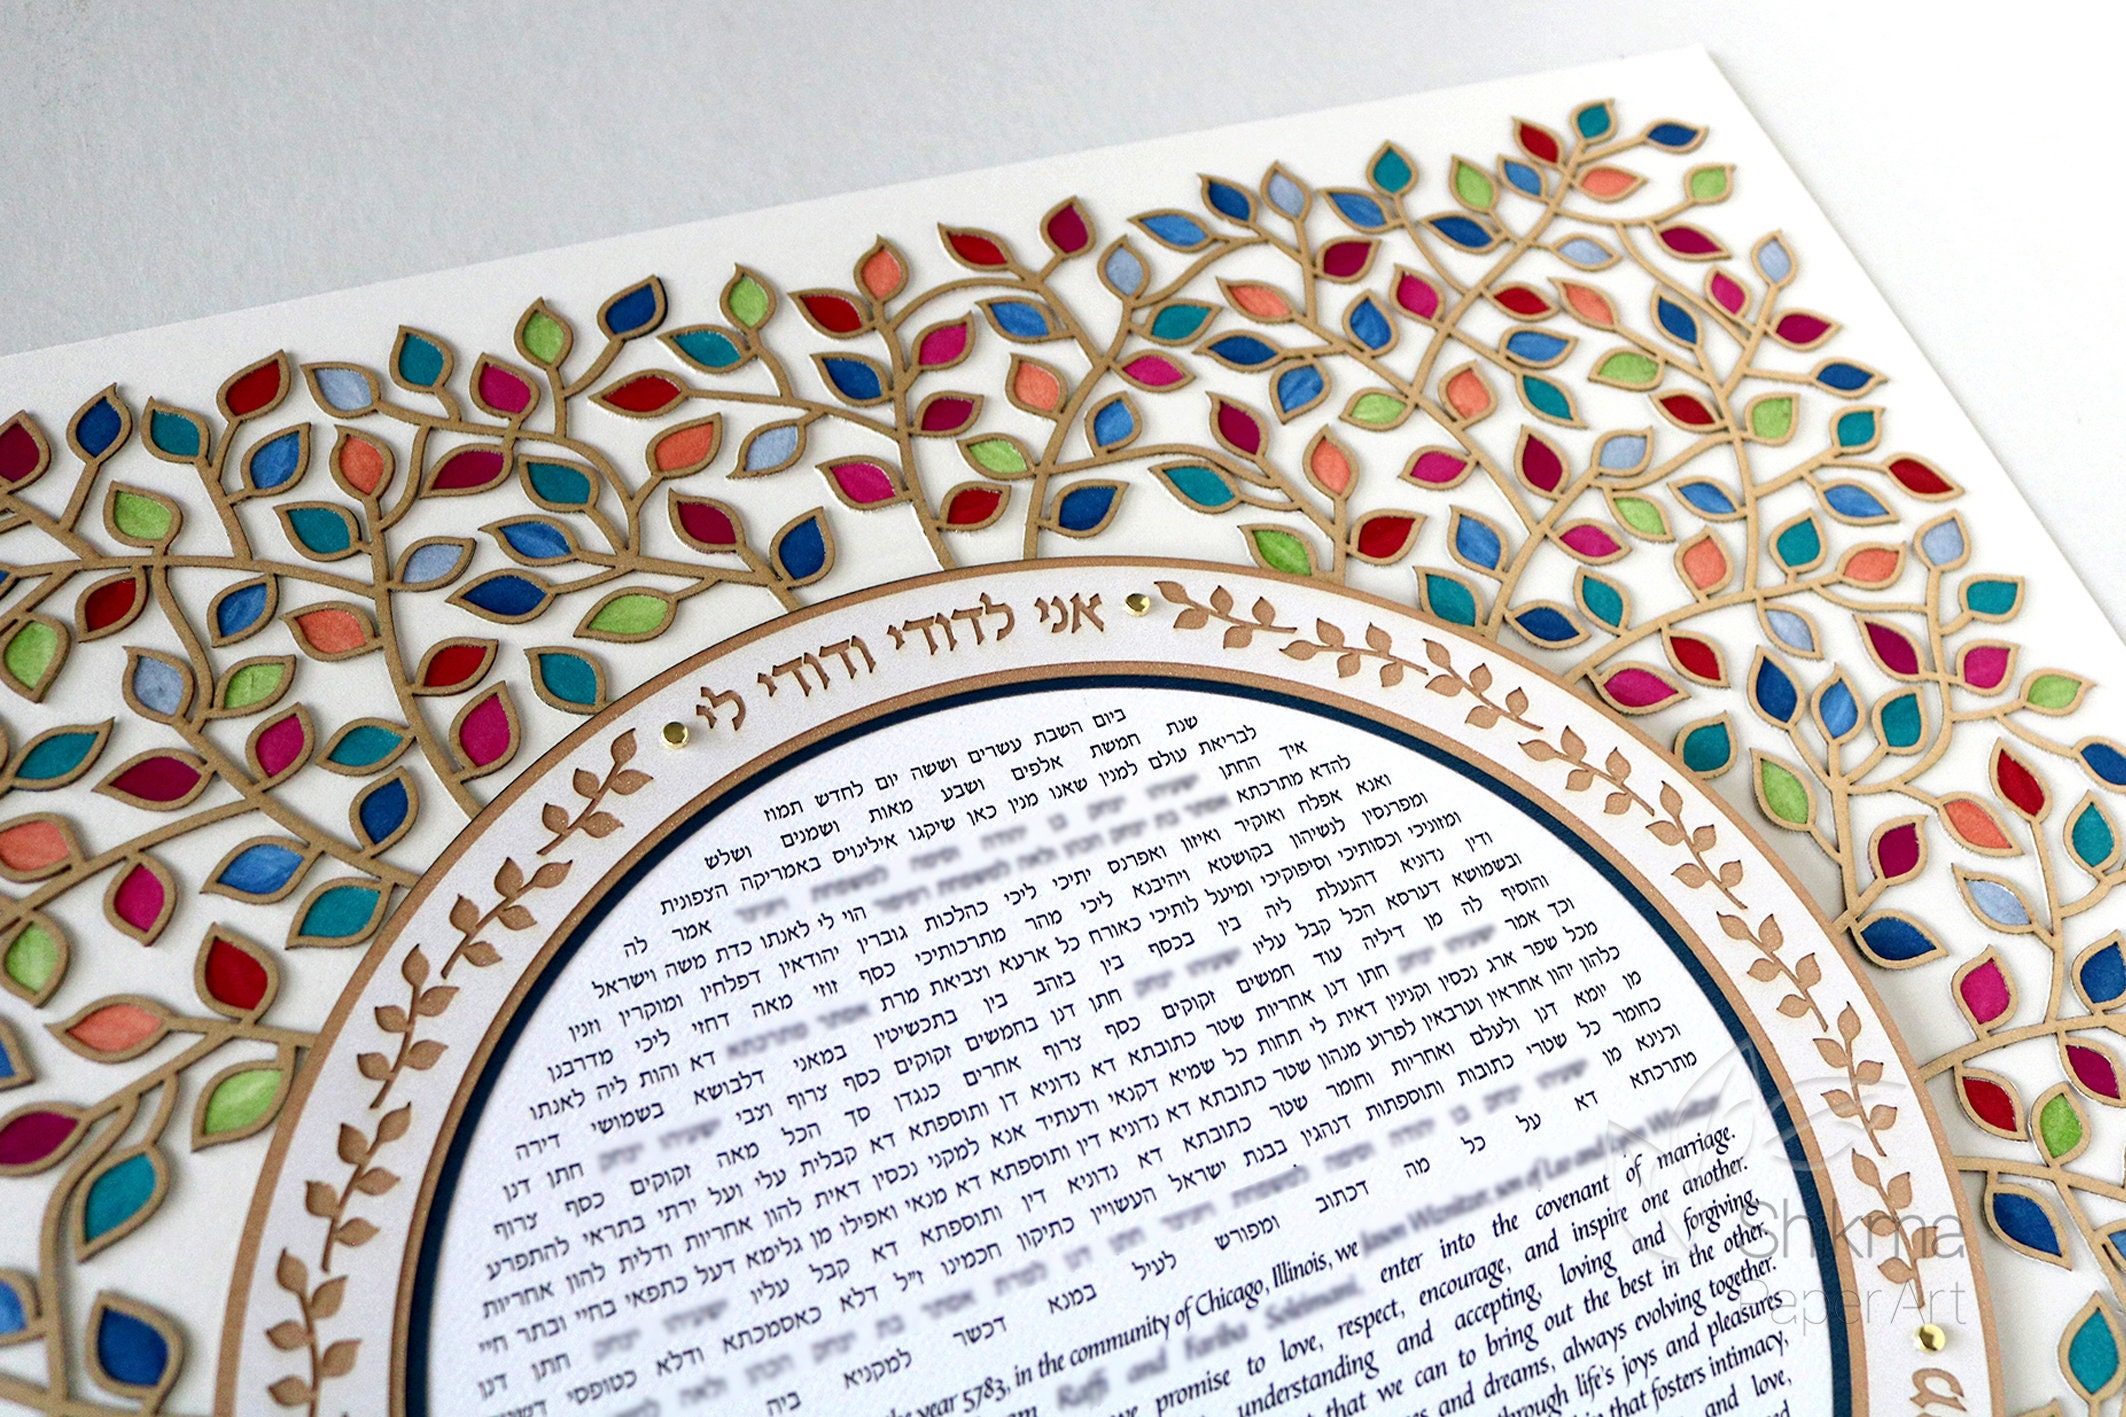 אני לדודי ודודי לי
ביום השבת עשרים וששה יום לחדש תמוז
שנת חמשת אלפים ושבע מאות ושמנים ושלש
לבריאת עולם למנין שאנו מנין כאן שיקגו אילינויס באמריקה הצפונית
איך החתן אמר לה
להדא מתרכתא הוי לי לאנתו כדת משה וישראל
ואנא אפלח ואוקיר ואיזון ואפרנס יתיכי ליכי כהלכות גוברין יהודאין דפלחין ומוקרין וזנין
ומפרנסין לנשיהון בקושטא ויהיבנא ליכי מהר מתרכותיכי כסף זוזי מאה דחזי ליכי מדרבנן
ומזוניכי וכסותיכי וסיפוקיכי ומיעל לותיכי כאורח כל ארעא וצביאת מרת דא והות ליה לאנתו
ודין נדוניא דהנעלת ליה בין בכסף בין בזהב בין בתכשיטין במאני דלבושא בשמושי דירה
ובשמושא דערסא הכל קבל עליו חתן דנן בחמשים זקוקים כסף צרוף וצבי חתן דנן
והוסיף לה מן דיליה עוד חמשים זקוקים כסף צרוף אחרים כנגדן סך הכל מאה זקוקים כסף צרוף
וכך אמר חתן דנן אחריות שטר כתובתא דא נדוניא דן ותוספתא דא קבלית עלי ועל ירתי בתראי להתפרע
מכל שפר ארג נכסין וקנינין דאית לי תחות כל שמיא דקנאי ודעתיד אנא למקני נכסין דאית להון אחריות ודלית להון אחריות
כלהון יהון אחראין וערבאין לפרוע מנהון שטר כתובתא דא נדוניא דין ותוספתא דא מנאי ואפילו מן גלימא דעל כתפאי בחיי ובתר חיי
מן יומא דנן ולעלם ואחריות וחומר שטר כתובתא דא נדוניא דין ותוספתא דא קבל עליו חתן דנן
כחומר כל שטרי כתובות ותוספתות דנהגין בבנת ישראל העשויין כתיקון חכמינו ז״ל דלא כאסמכתא ודלא כטופסי
וקנינא מן
מתרכתא דא על כל מה דכתוב ומפורש לעיל במנא דכשר למקניא ביה
year 5783, in the community of Chicago, Illinois, we
enter into the covenant of marriage.
promise to love, respect, encourage, and inspire one another.
understanding and accepting, loving and forgiving,
that we can to bring out the best in the other.
and dreams, always evolving together.
through life's joys and pleasures
that fosters intimacy,
and love,
Shikma
Paper Art